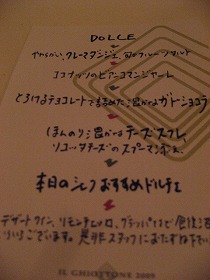 DOLCE
やわらかい、クレーマダンジェ 旬のフルーツ
ココナッツのビアンコマンジャーレ
とろけるチョコレートを包めた温かなガトーショコラ
ほんのり温かなチーズスフレ、
リコッタチーズのスプーマ
本日のシェフおすすめドルチェ
デザートワイン、リモンチェッロ、グラッパなど食後酒
ございます。是非スタッフにおたずね下さい
IL GHIOTTONE 2009